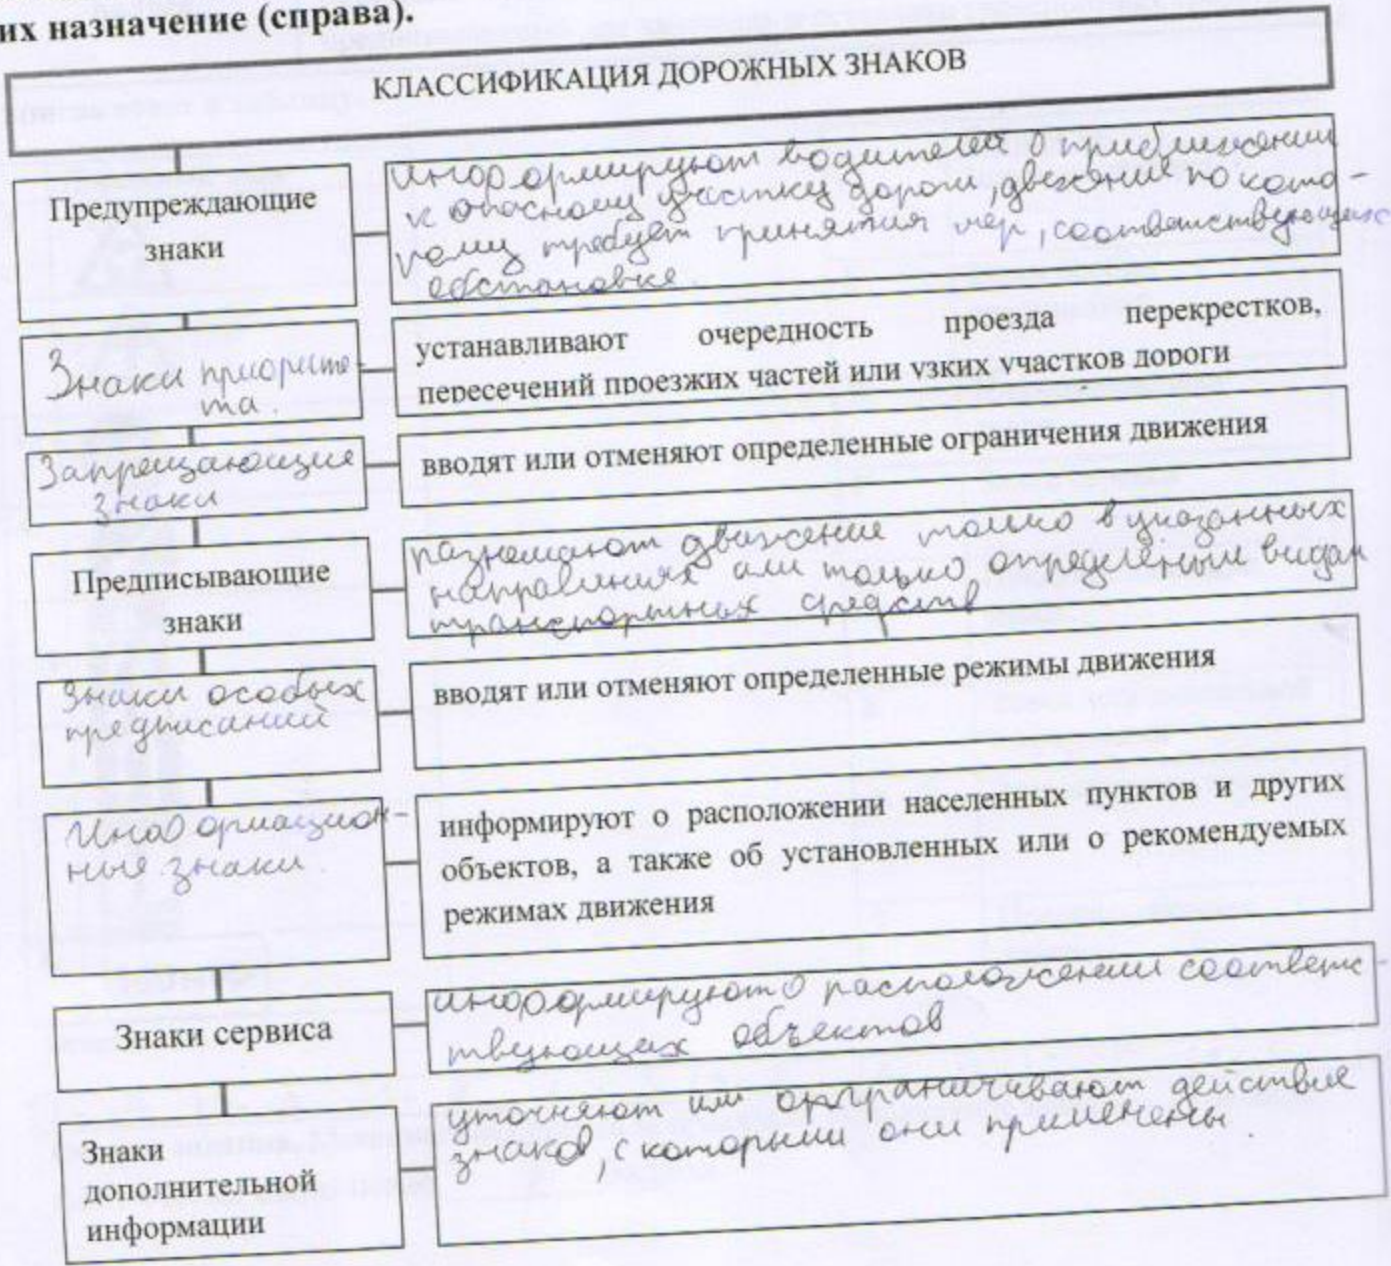 их назначение (справа).
КЛАССИФИКАЦИЯ ДОРОЖНЫХ ЗНАКОВ
Предупреждающие
знаки
информируют водителей о приближении
к опасному участку дороги, движение по кото-
рому требует принятия мер, соответствующих
обстановке.
Знаки приорите-
та.
устанавливают очередность проезда перекрестков,
пересечений проезжих частей или узких участков дороги
Запрещающие
знаки
вводят или отменяют определенные ограничения движения
Предписывающие
знаки
разрешают движение только в указанных
направлениях или только определеным видам
транспортных средств
Знаки особых
предписаний
вводят или отменяют определенные режимы движения
Информацион-
ные знаки.
информируют о расположении населенных пунктов и других
объектов, а также об установленных или о рекомендуемых
режимах движения
Знаки сервиса
информируют о расположении соответс-
твующих объектов
Знаки
дополнительной
информации
уточняют или ограничивают действие
знаков, с которыми они применены.